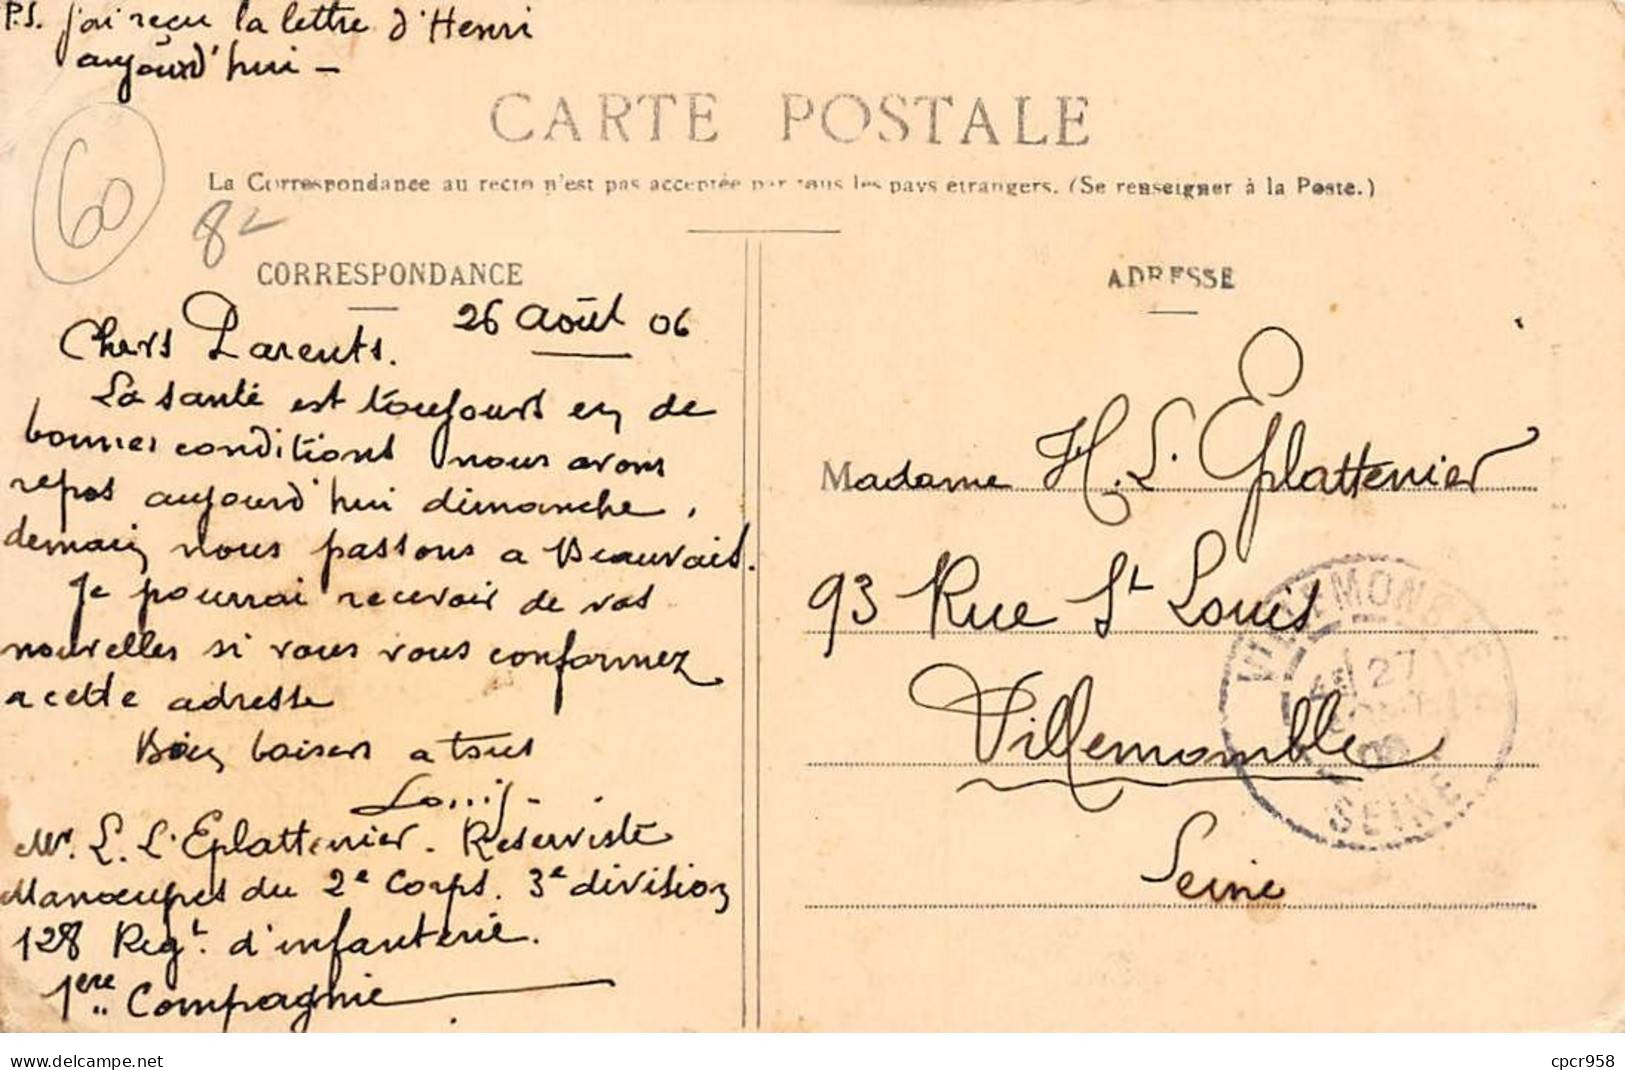 P.S. j'ai reçu la lettre d'Henri
aujourd'hui –
CARTE POSTALE
La Correspondance au recto n'est pas acceptée par tous les pays étrangers. (Se renseigner à la Poste.)
60
8-
CORRESPONDANCE
26 Août 06
Chers Parents.
La santé est toujours en de
bonnes conditions nous avons
repos aujourd'hui dimanche,
demain nous passons a Beauvais.
Je pourrai recevoir de vos
nouvelles si vous vous conformez
a cette adresse
Bien baisers a tous
Louis.
Mr. L. L'Eplattenier. Reserviste
Manoeuvres du 2e Corps. 3e division
128 Regt. d'infanterie.
1ere Compagnie
ADRESSE
Madame H. L'Eplattenier
93 Rue St Louis
Villemomble
Seine
VILLEMOMBLE
27
06
SEINE
www.delcampe.net
cpcr958